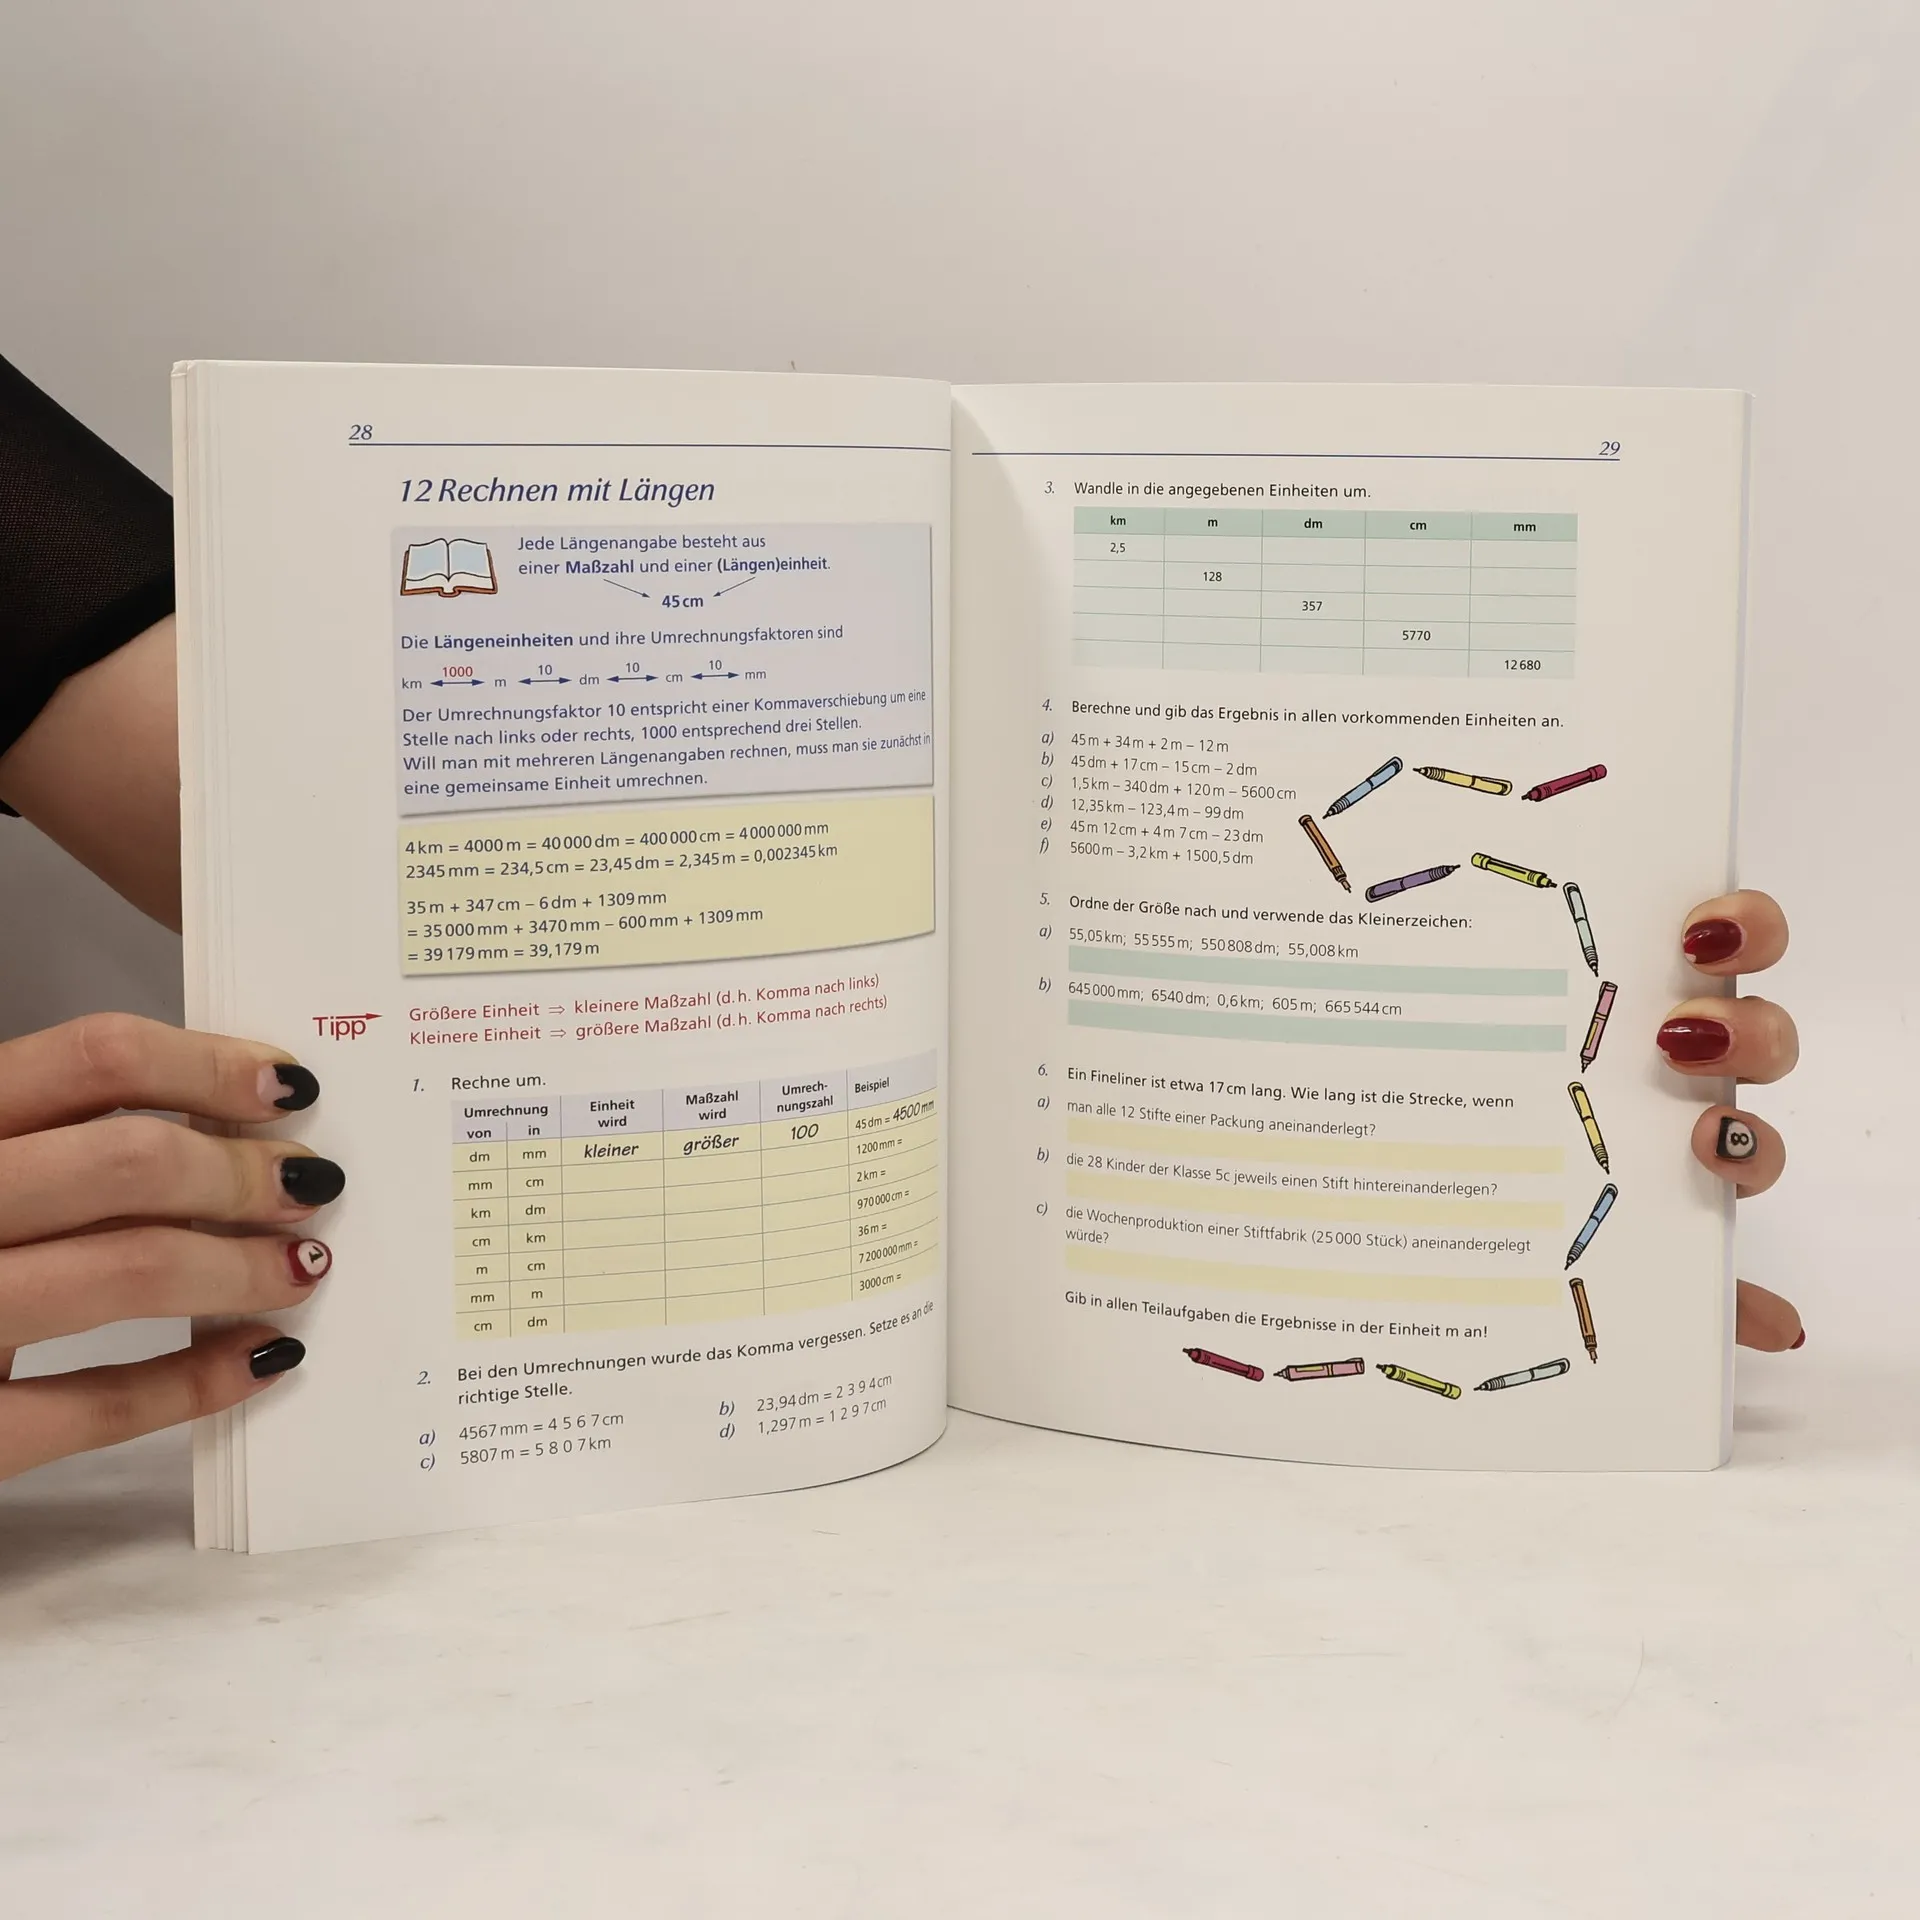 28
12 Rechnen mit Längen
Jede Längenangabe besteht aus
einer Maßzahl und einer (Längen)einheit.
45 cm
Die Längeneinheiten und ihre Umrechnungsfaktoren sind
1000 10 10 10
km m dm cm mm
Der Umrechnungsfaktor 10 entspricht einer Kommaverschiebung um eine
Stelle nach links oder rechts, 1000 entsprechend drei Stellen.
Will man mit mehreren Längenangaben rechnen, muss man sie zunächst in
eine gemeinsame Einheit umrechnen.
4 km = 4000 m = 40 000 dm = 400 000 cm = 4 000 000 mm
2345 mm = 234,5 cm = 23,45 dm = 2,345 m = 0,002345 km
35 m + 347 cm – 6 dm + 1309 mm
= 35 000 mm + 3470 mm – 600 mm + 1309 mm
= 39 179 mm = 39,179 m
Tipp
Größere Einheit ⇒ kleinere Maßzahl (d. h. Komma nach links)
Kleinere Einheit ⇒ größere Maßzahl (d. h. Komma nach rechts)
1. Rechne um.
Umrechnung Einheit wird Maßzahl wird Umrech-nungszahl Beispiel
von in
dm mm kleiner größer 100 45 dm = 4500 mm
mm cm 1200 mm =
km dm 2 km =
cm km 970 000 cm =
m cm 36 m =
mm m 7 200 000 mm =
cm dm 3000 cm =
2. Bei den Umrechnungen wurde das Komma vergessen. Setze es an die
richtige Stelle.
a) 4567 mm = 4 5 6 7 cm b) 23,94 dm = 2 3 9 4 cm
c) 5807 m = 5 8 0 7 km d) 1,297 m = 1 2 9 7 cm
29
3. Wandle in die angegebenen Einheiten um.
km m dm cm mm
2,5
128
357
5770
12 680
4. Berechne und gib das Ergebnis in allen vorkommenden Einheiten an.
a) 45 m + 34 m + 2 m – 12 m
b) 45 dm + 17 cm – 15 cm – 2 dm
c) 1,5 km – 340 dm + 120 m – 5600 cm
d) 12,35 km – 123,4 m – 99 dm
e) 45 m 12 cm + 4 m 7 cm – 23 dm
f) 5600 m – 3,2 km + 1500,5 dm
5. Ordne der Größe nach und verwende das Kleinerzeichen:
a) 55,05 km; 55 555 m; 550 808 dm; 55,008 km
b) 645 000 mm; 6540 dm; 0,6 km; 605 m; 665 544 cm
6. Ein Fineliner ist etwa 17 cm lang. Wie lang ist die Strecke, wenn
a) man alle 12 Stifte einer Packung aneinanderlegt?
b) die 28 Kinder der Klasse 5c jeweils einen Stift hintereinanderlegen?
c) die Wochenproduktion einer Stiftfabrik (25 000 Stück) aneinandergelegt
würde?
Gib in allen Teilaufgaben die Ergebnisse in der Einheit m an!
8